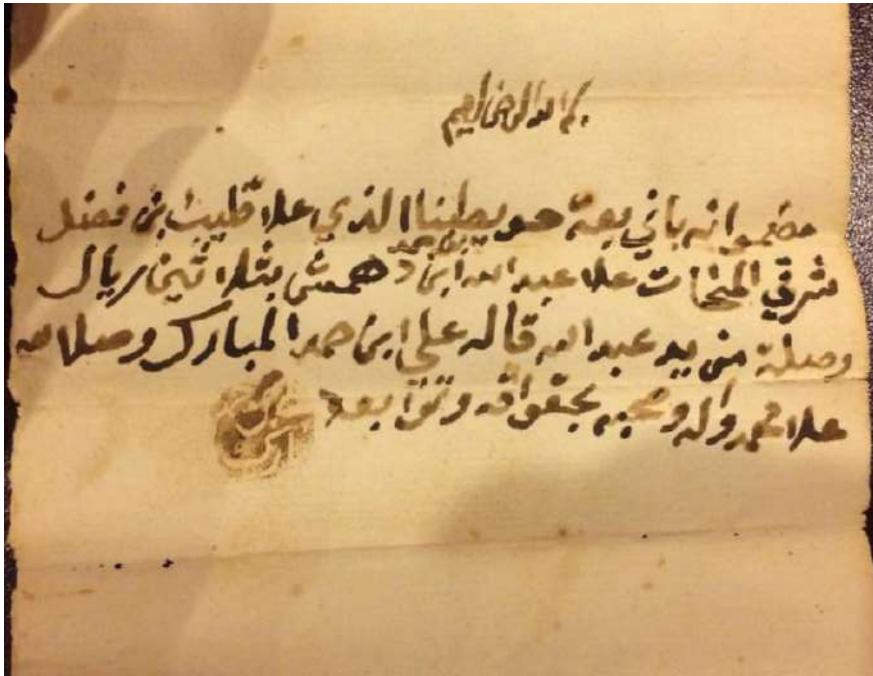 بسم الله الرحمن الرحيم
مضمونه باني بعة حويطنا الذي علا قليب بن فضل
شرقي المنخات علا عبد الله ابن حمد دهمش بثلاثين ريال
وصلة من يد عبد الله قاله علي ابن حمد المبارك وصلا الله
علا محمد واله وصحبه بحقواقه وتوابعه